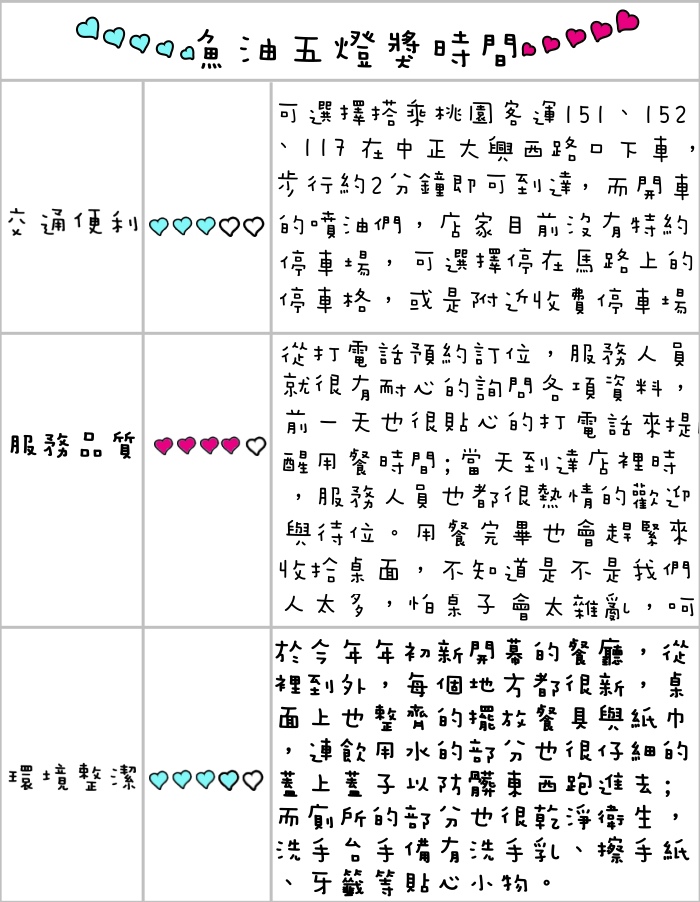 魚油五燈獎時間
交通便利
可選擇搭乘桃園客運151、152
、117在中正大興西路口下車，
步行約2分鐘即可到達，而開車
的噴油們，店家目前沒有特約
停車場，可選擇停在馬路上的
停車格，或是附近收費停車場
服務品質
從打電話預約訂位，服務人員
就很有耐心的詢問各項資料，
前一天也很貼心的打電話來提
醒用餐時間;當天到達店裡時
，服務人員也都很熱情的歡迎
與待位。用餐完畢也會趕緊來
收拾桌面，不知道是不是我們
人太多，怕桌子會太雜亂，呵
環境整潔
於今年年初新開幕的餐廳，從
裡到外，每個地方都很新，桌
面上也整齊的擺放餐具與紙巾
，連飲用水的部分也很仔細的
蓋上蓋子以防髒東西跑進去;
而廁所的部分也很乾淨衛生，
洗手台手備有洗手乳、擦手紙
、牙籤等貼心小物。